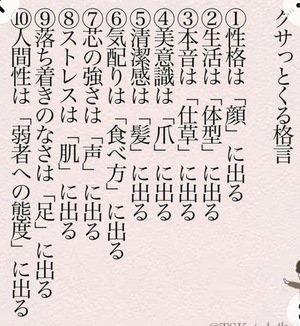 グサっとくる格言
①性格は「顔」に出る
②生活は「体型」に出る
③本音は「仕草」に出る
④美意識は「爪」に出る
⑤清潔感は「髪」に出る
⑥気配りは「食べ方」に出る
⑦芯の強さは「声」に出る
⑧ストレスは「肌」に出る
⑨落ち着きのなさは「足」に出る
⑩人間性は「弱者への態度」に出る